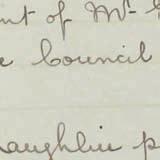 nt of Mr.
e Council
aughlin p